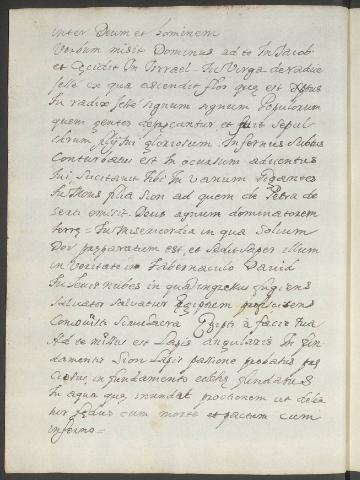 inter Deum et hominem
Verbum misit Dominus ad te In Jacob
et Cecidit In Israel - Tu Virga de radice
Jesse ex qua ascendit flor que est Xptus
Tu radix Jesse signum signum Populorum
quem gentes deprecantur et fuit sepul
chrum gloriosum Infernus subtus
Conturbatus est In occursum adventus
tui suscitavit tibi In vanum gigantes
Tu Mons filia Sion ad quem de Petra de
serti emisit Deus agnum dominatorem
terre = Tu Misericordia in qua solium
Dei preparatum est, et sedit super illum
in Veritate in Tabernaculo David
Tu levis nubes in qua ingressus
Salvator Salvatur Egiptum
Simulacra Egipti à facie tua
Ad te missus est Lapis angularis In fun
damentis Sion Lapis passione probatus pre
ciosus, in fundamento fundatus
Tu aqua que inundat ut dele
tur fedus cum morte et pactum cum
inferno =